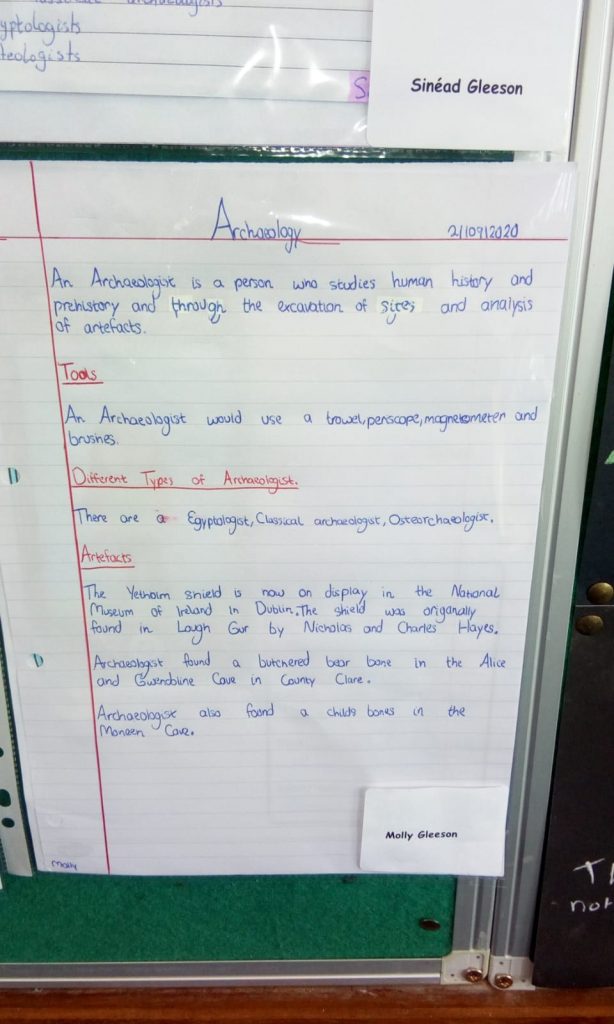 yptologists
teologists
S
Sinéad Gleeson
Archaeology 21/09/2020
An Archaeologist is a person who studies human history and
prehistory and through the excavation of sites and analysis
of artefacts.
Tools
An Archaeologist would use a trowel, periscope, magnetometer and
brushes.
Different Types of Archaeologist.
There are a Egyptologist, Classical archaeologist, Osteorchaeologist.
Artefacts
The Yetholm shield is now on display in the National
Museum of Ireland in Dublin. The shield was origanally
found in Lough Gur by Nicholas and Charles Hayes.
Archaeologist found a butchered bear bone in the Alice
and Gwendoline Cave in County Clare.
Archaeologist also found a childs bones in the
Moneen Cave.
Molly Gleeson
Molly
not